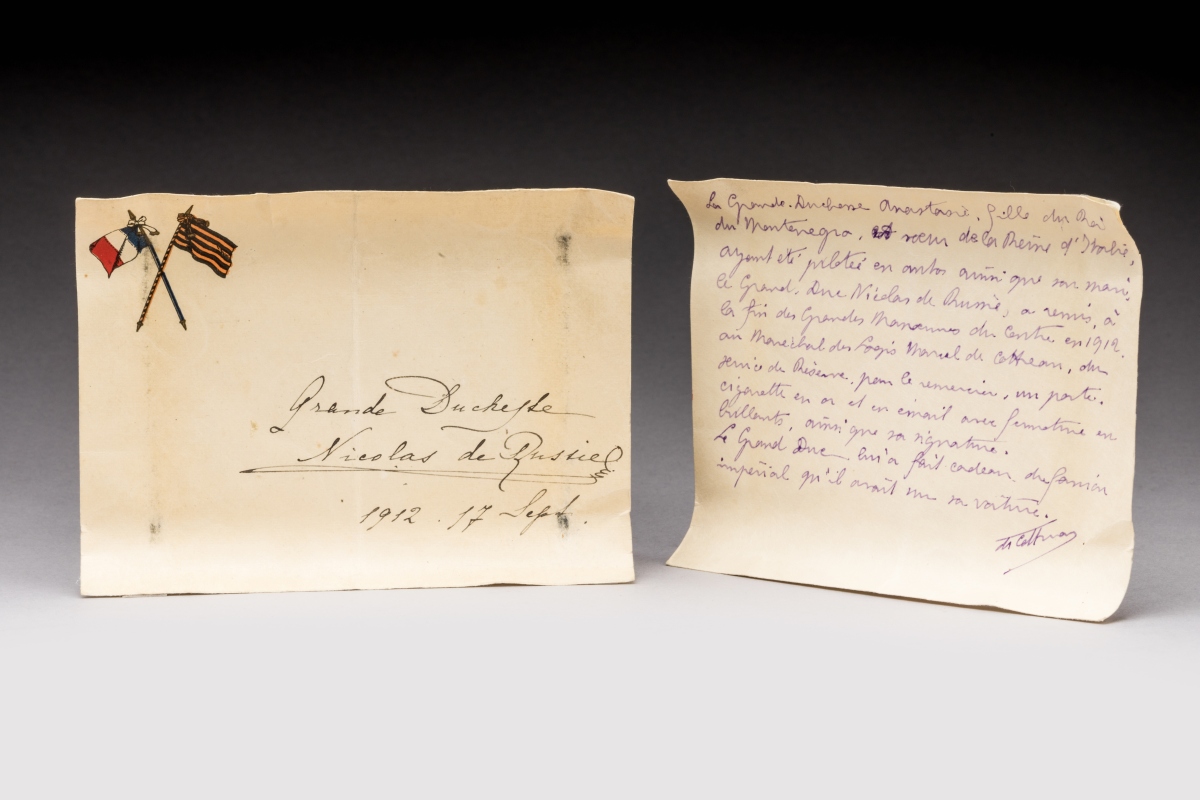 Grande Duchesse
Nicolas de Russie
1912. 17 Sept.
La Grande-Duchesse Anastasie, fille du Roi
du Montenegro, et sœur de la Reine d'Italie,
ayant été pilotée en autos ainsi que son mari,
le Grand-Duc Nicolas de Russie, a remis, à
la fin des Grandes Manœuvres du Centre en 1912.
au Maréchal des Logis Marcel de Cottreau, du
service de Réserve. pour le remercier, un porte-
cigarette en or et en émail avec fermeture en
brillants, ainsi que sa signature.
Le Grand Duc lui a fait cadeau du fanion
impérial qu'il avait sur sa voiture.